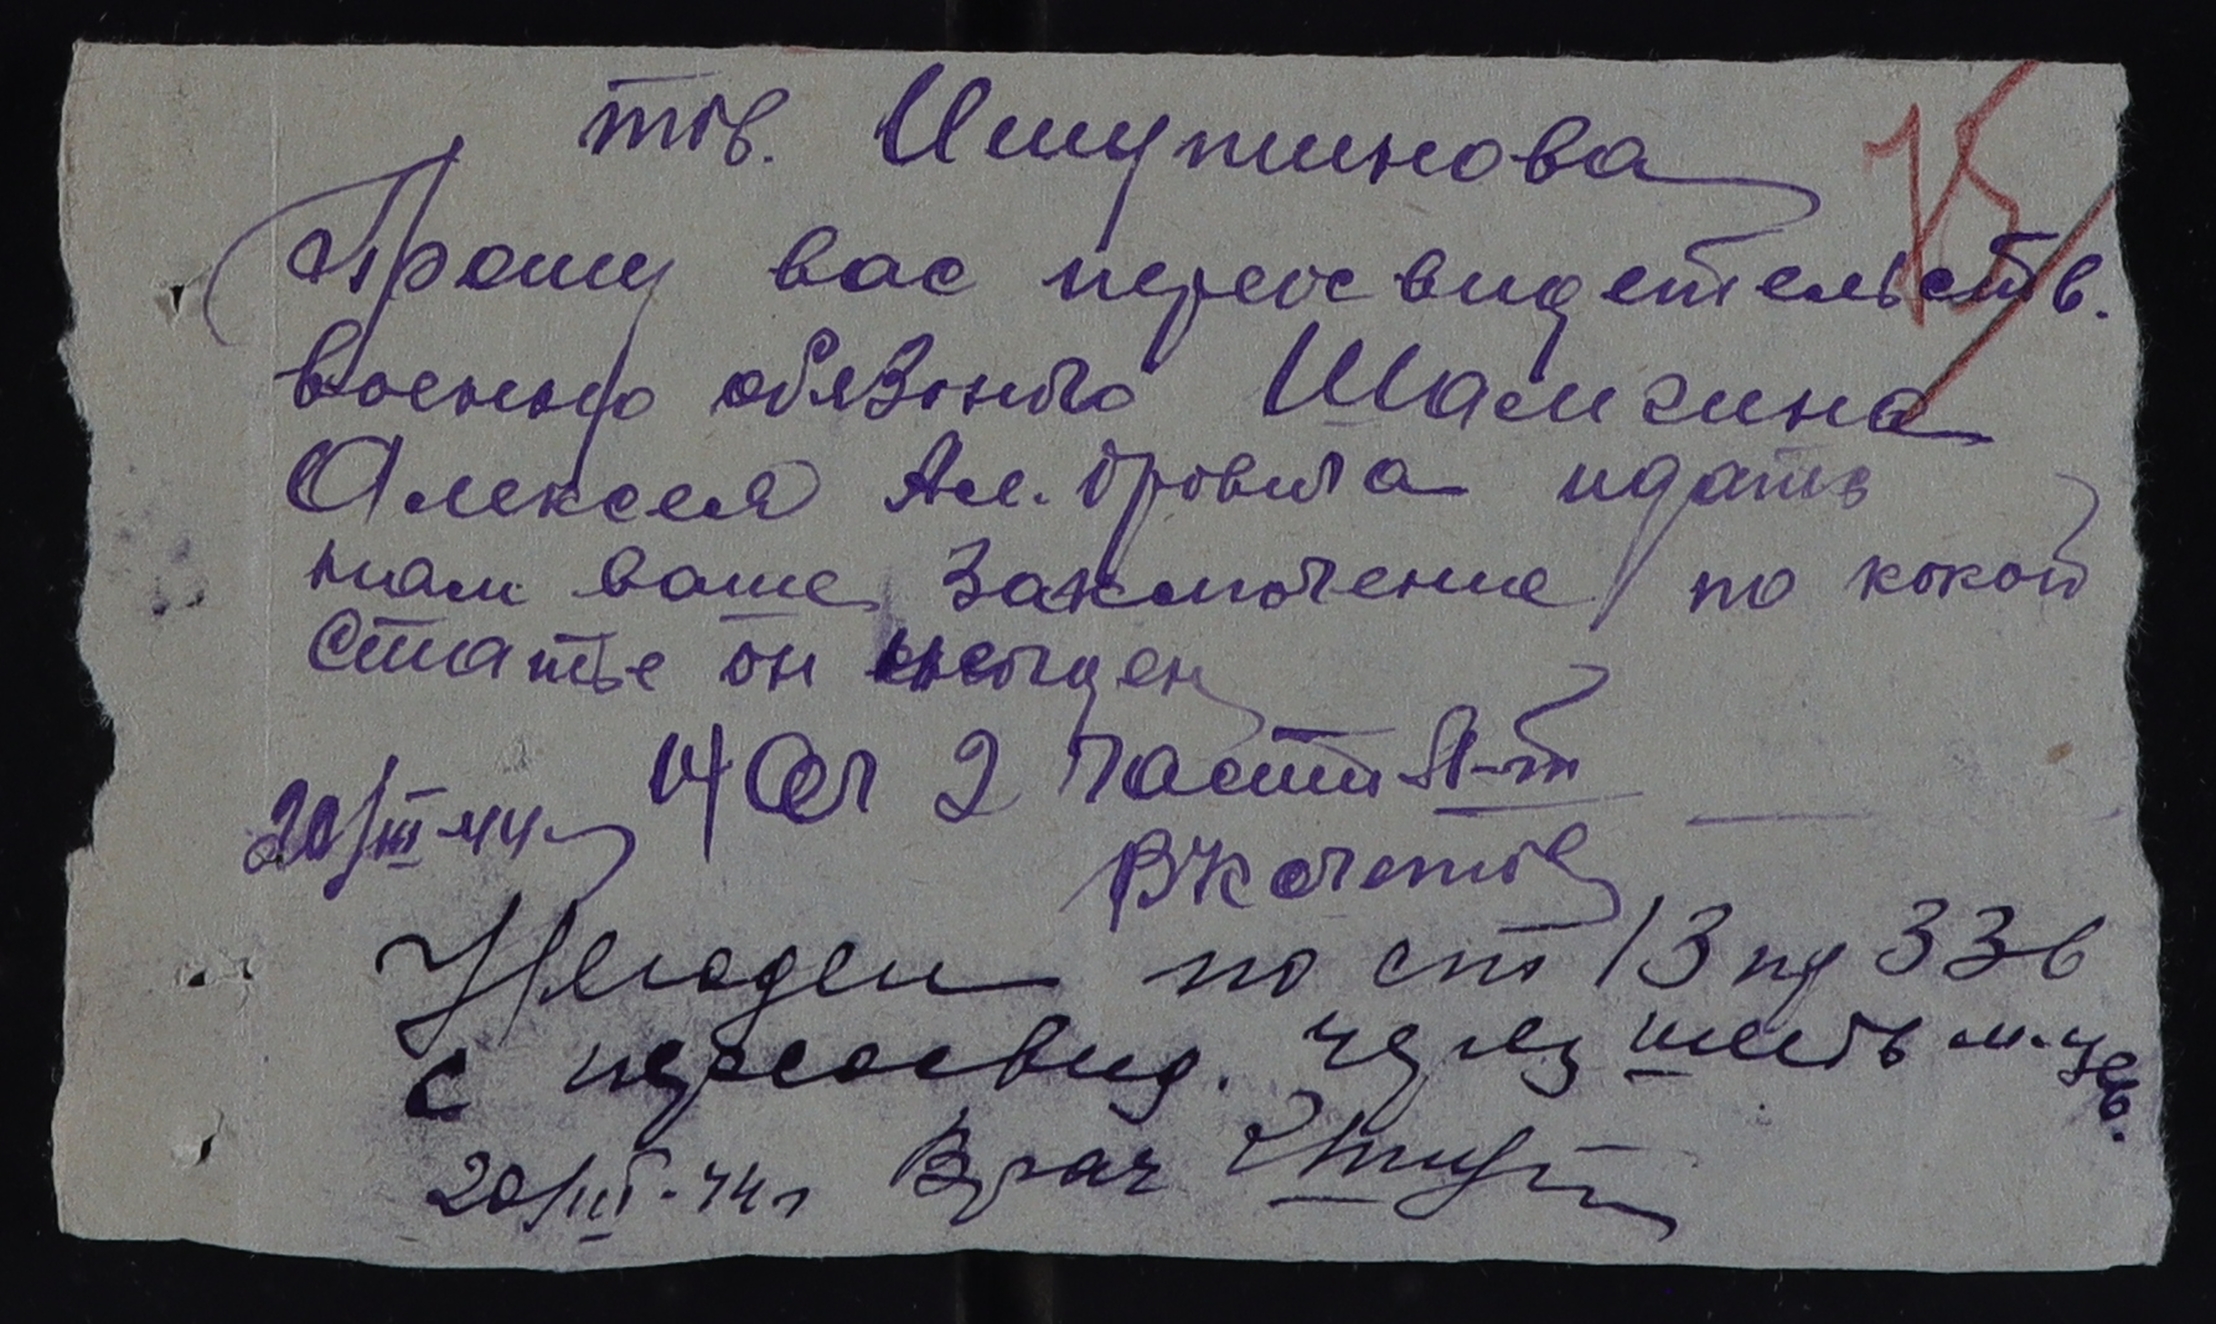 тов. Ишутинова
75
Прошу вас переосвидетельств.
военно обязоного Шамгина
Алексея Ал. дровича идать
нам ваше заключение по какой
статье он негоден
Нач 2 части
20/III-44 г
В Кочетов
Негоден по ст 13 пд 33в
с переосвид. через шесть м-цев.
20/III-44 г Врач